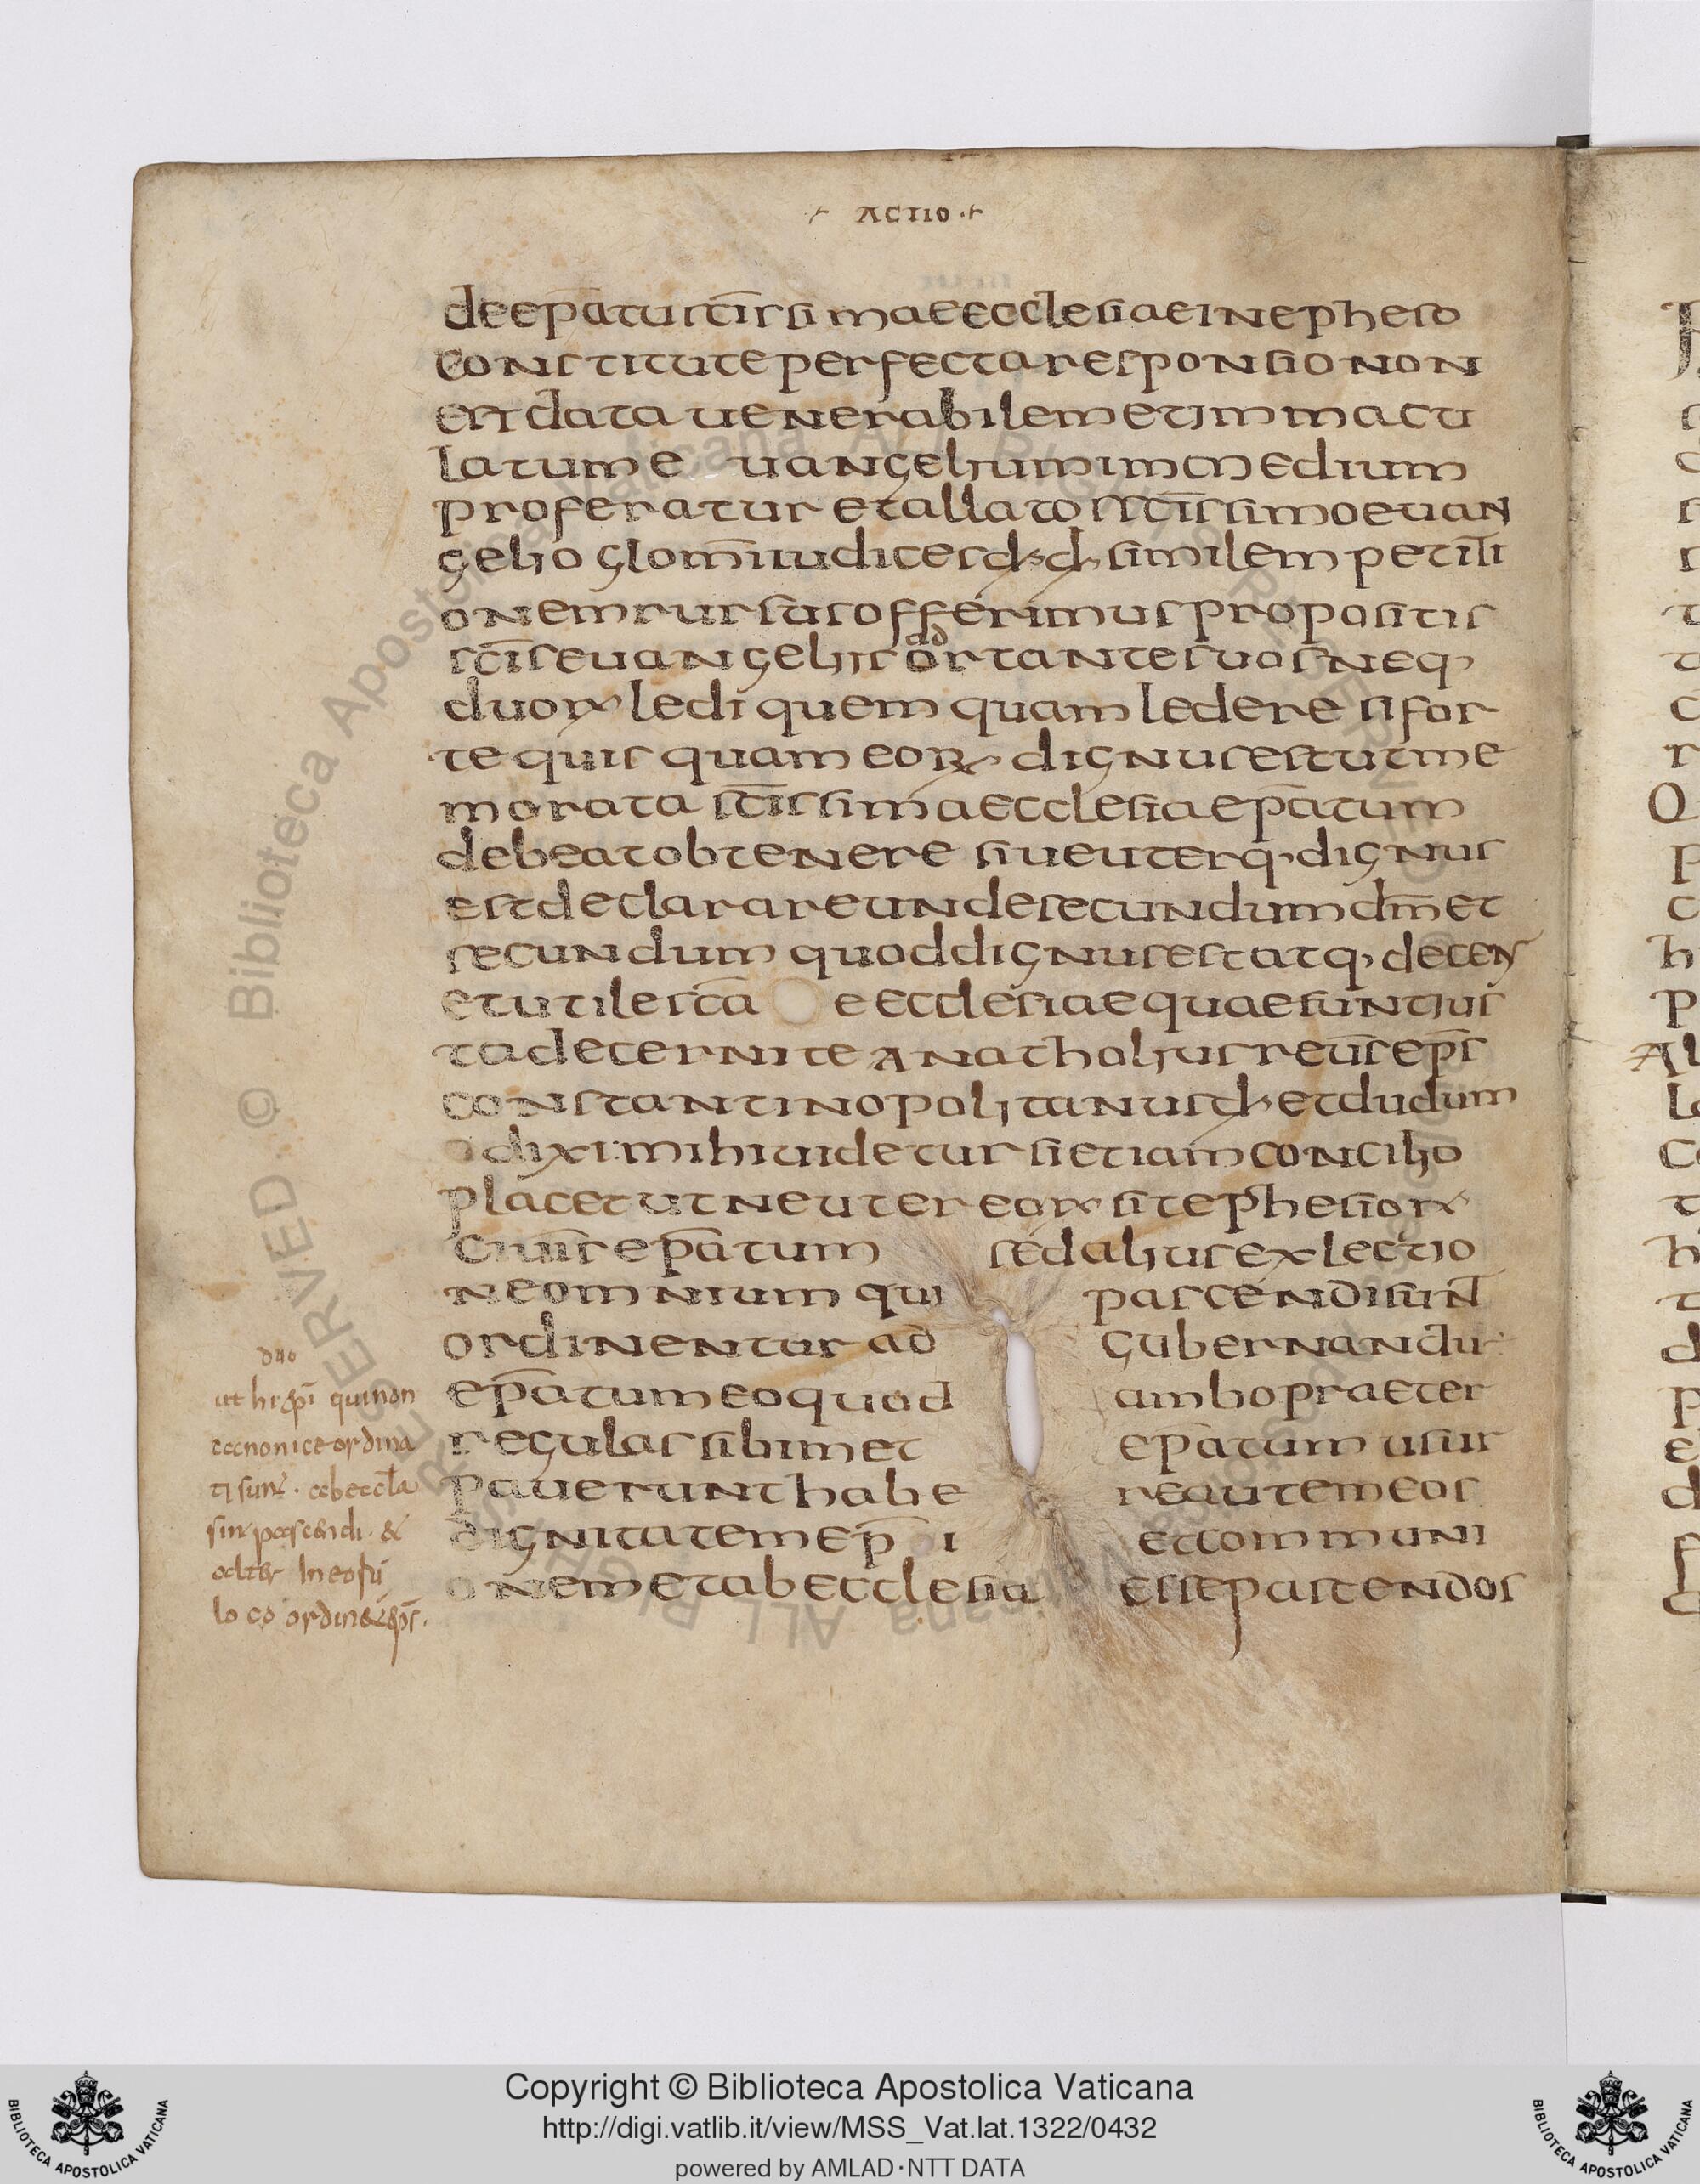 + ACTIO +
deep̄atu sc̄issimae ecclesiae in epheso
constitute perfecta responsio non
est data venerabilem et immacu
latum e uangelium in medium
proferatur et allato s sc̄issimo euan
gelio glom̄ iudices d d similem petiti
onem rursus offerimus propositis
sc̄is euangeliis ortantes uos neq
duorx ledi quem quam ledere si for
te quis quam eorx dignus est ut me
morata sc̄issima ecclesia ep̄atum
debeat obtenere siue uterq dignus
est declarare unde secundum dm̄ et
secundum quod dignus est atq decens
et utile sc̄a e ecclesiae quae sunt ius
ta decernite Anatholius reu̅s ep̄s
constantinopolitanus d et dudum
dixi mihi uidetur si etiam concilio
placet ut neuter eorx sit ephesiorx
ciuii̅s ep̄atum sed alius ex lectio
ne omnium qui pascendi sunt
ordinentur ad gubernandu
ep̄atum eo quod ambo praeter
regulas sibimet ep̄atum usur
pauerunt habe re autem eos
dignitatem ep̄ i et communi
onem et ab ecclesia esse pascendos
duo
ut hi ep̄i qui non
canonice ordina
ti sunt . ab eccl̄a
sint pascendi . &
alter in eo fu
loco ordin& ep̄s .
Copyright © Biblioteca Apostolica Vaticana
http://digi.vatlib.it/view/MSS_Vat.lat.1322/0432
powered by AMLAD·NTT DATA